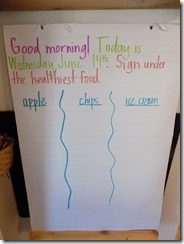 Good morning! Today is
Wednesday June 14th. Sign under
the healthiest food.
apple chips ice cream